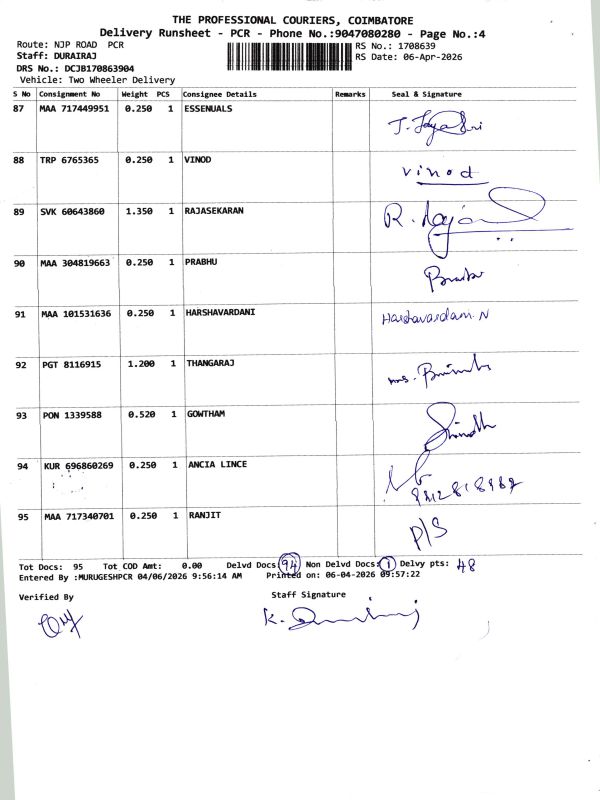 THE PROFESSIONAL COURIERS, COIMBATORE
Delivery Runsheet - PCR - Phone No.:9047080280 - Page No.:4
Route: NJP ROAD PCR
RS No.: 1708639
Staff: DURAIRAJ
RS Date: 06-Apr-2026
DRS No.: DCJB170863904
Vehicle: Two Wheeler Delivery
S No Consignment No Weight PCS Consignee Details Remarks Seal & Signature
87 MAA 717449951 0.250 1 ESSENUALS
88 TRP 6765365 0.250 1 VINOD vinod
89 SVK 60643860 1.350 1 RAJASEKARAN
90 MAA 304819663 0.250 1 PRABHU
91 MAA 101531636 0.250 1 HARSHAVARDANI Harshavardam.N
92 PGT 8116915 1.200 1 THANGARAJ
93 PON 1339588 0.520 1 GOWTHAM
94 KUR 696860269 0.250 1 ANCIA LINCE
95 MAA 717340701 0.250 1 RANJIT P/S
Tot Docs: 95 Tot COD Amt: 0.00 Delvd Docs: 94 Non Delvd Docs: 1 Delvy pts: 48
Entered By :MURUGESHPCR 04/06/2026 9:56:14 AM Printed on: 06-04-2026 09:57:22
Verified By Staff Signature